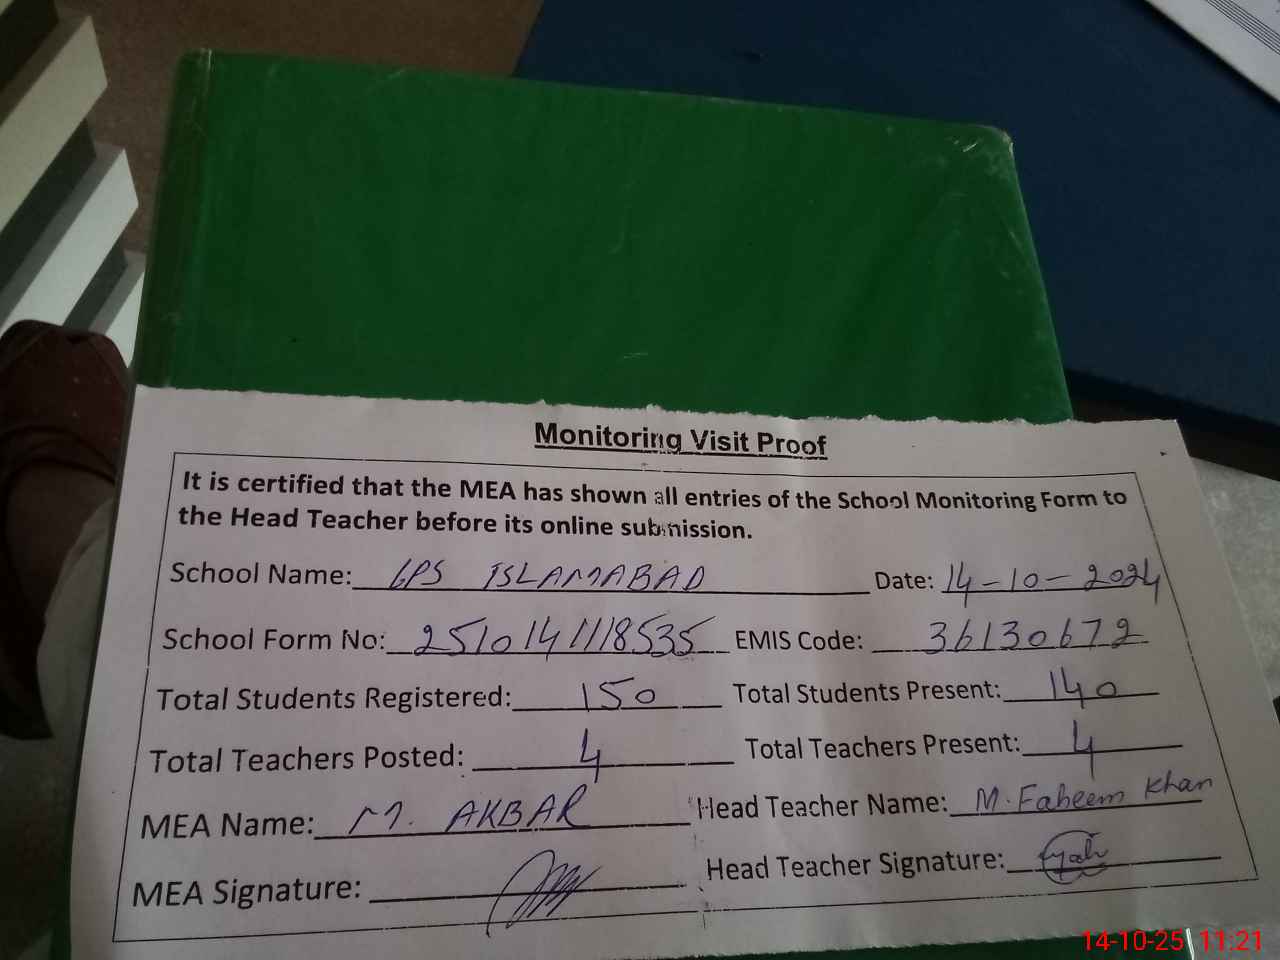 Monitoring Visit Proof
It is certified that the MEA has shown all entries of the School Monitoring Form to
the Head Teacher before its online submission.
School Name: GPS ISLAMABAD Date: 14-10-2024
School Form No: 2510141118535 EMIS Code: 36130672
Total Students Registered: 150 Total Students Present: 140
Total Teachers Posted: 4 Total Teachers Present: 4
MEA Name: M. AKBAR Head Teacher Name: M. Faheem Khan
MEA Signature: Head Teacher Signature:
14-10-25 11:21